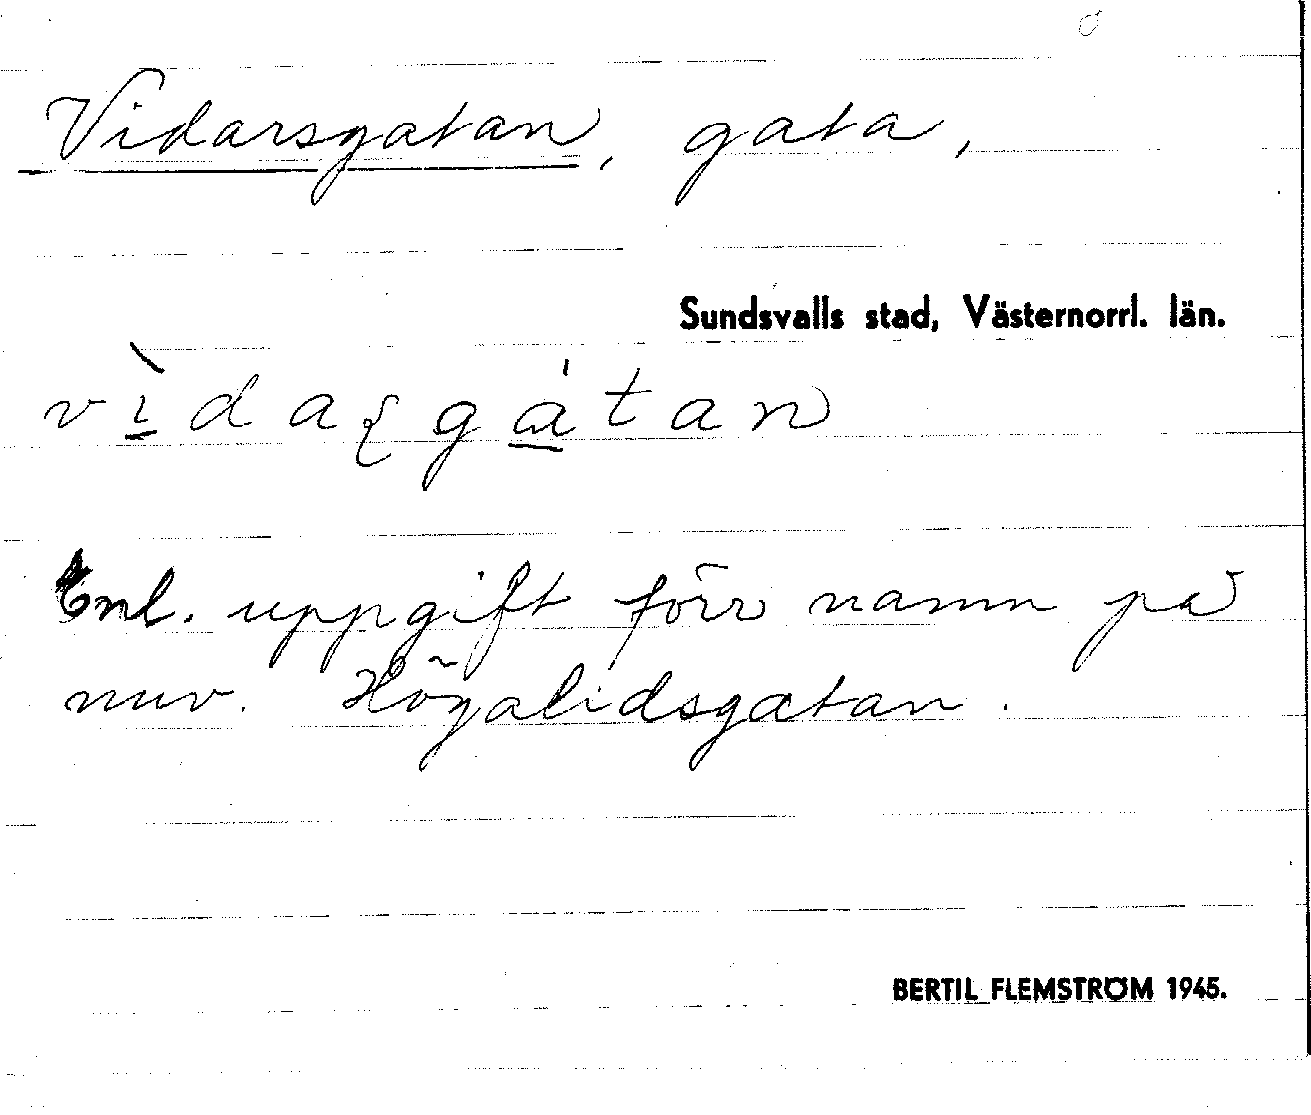 Vidarsgatan, gata,
Sundsvalls stad, Västernorrl. län.
Enl. uppgift förr namn på
nuv. Högalidsgatan.
BERTIL FLEMSTRÖM 1945.